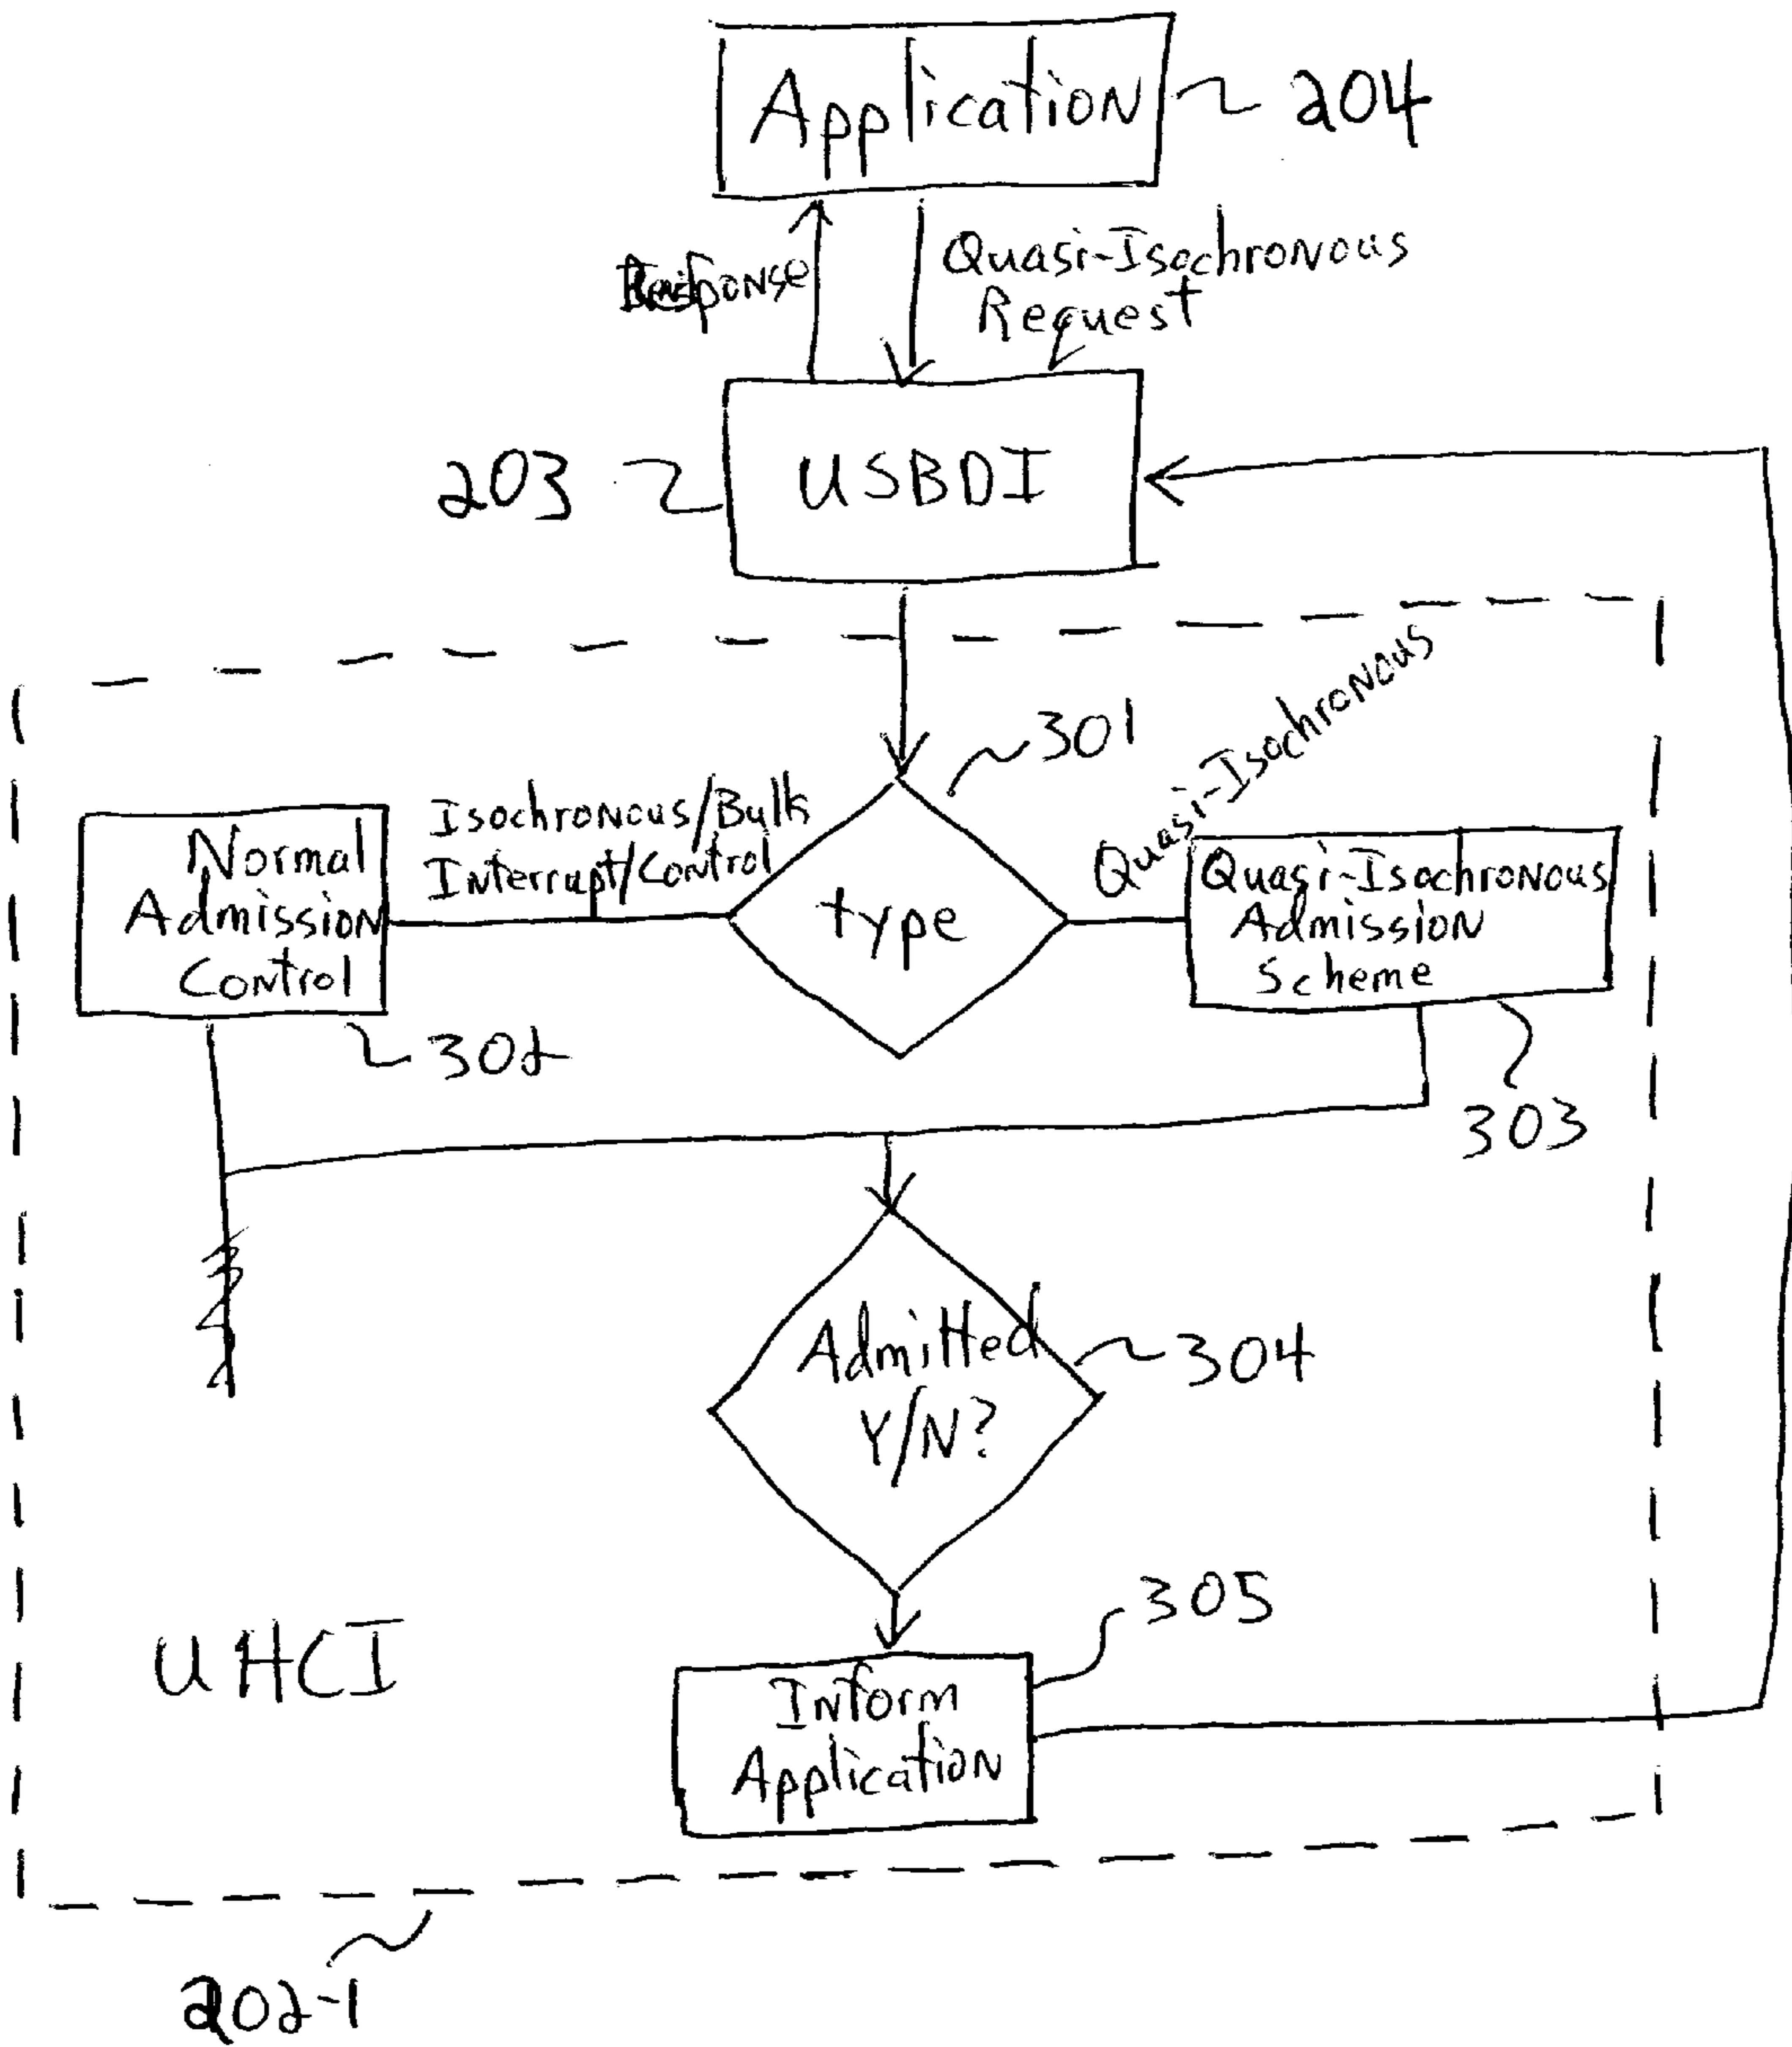 Application
204
Response
Quasi-Isochronous
Request
USBDI
203
301
Isochronous/Bulk
Interrupt/Control
Quasi-Isochronous
Normal
Admission
Control
type
Quasi-Isochronous
Admission
Scheme
302
303
Admitted
Y/N?
304
305
UHCI
Inform
Application
202-1